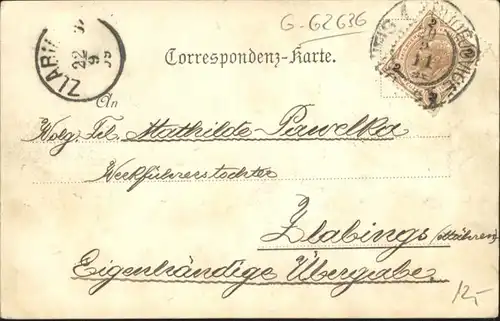 G-62636
ZLAB
22
9
99
Correspondenz-Karte.
An
Wolg. Frl. Mathilde Pawelka
Werkführerstochter
Zlabings (Mähren)
Eigenhändige Übergabe.
12,-